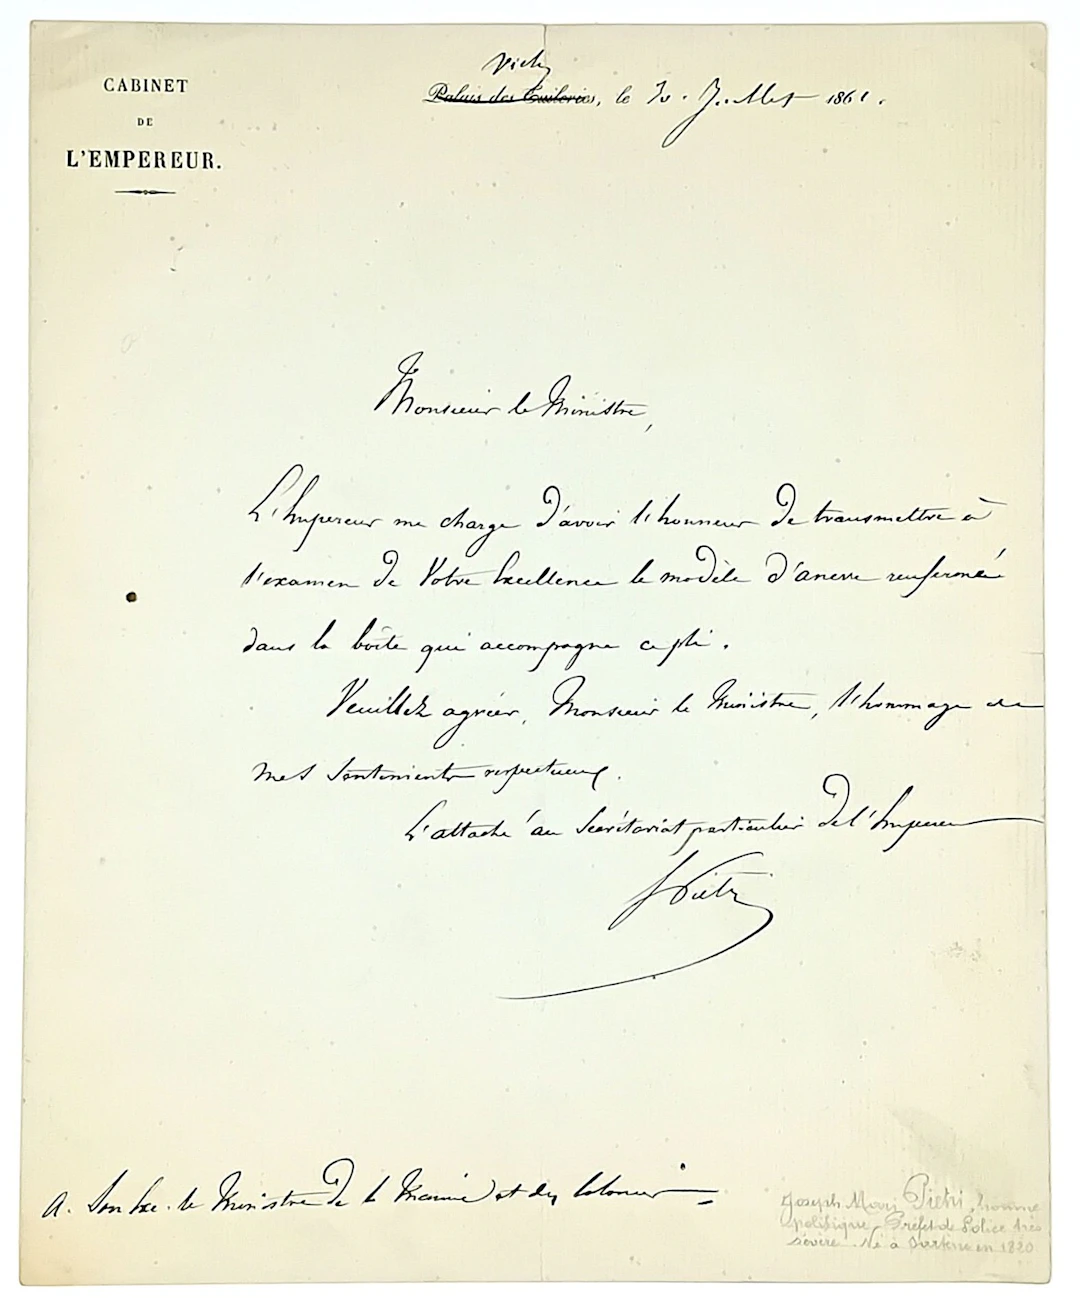 CABINET
DE
L'EMPEREUR.
Vichy
Palais des Tuileries, le 30 Juillet 1861.
Monsieur le Ministre,
L'Empereur me charge d'avoir l'honneur de transmettre à
l'examen de Votre Excellence le modèle d'ancre renfermé
dans la boîte qui accompagne ce pli.
Veuillez agréer, Monsieur le Ministre, l'hommage de
mes sentiments respectueux.
L'attaché au Secrétariat particulier de l'Empereur
Pietri
A. Son Exc. le Ministre de la Marine et des Colonies
Joseph Marie Pietri, homme
politique. Préfet de Police très
sévère. Né à Sartène en 1820